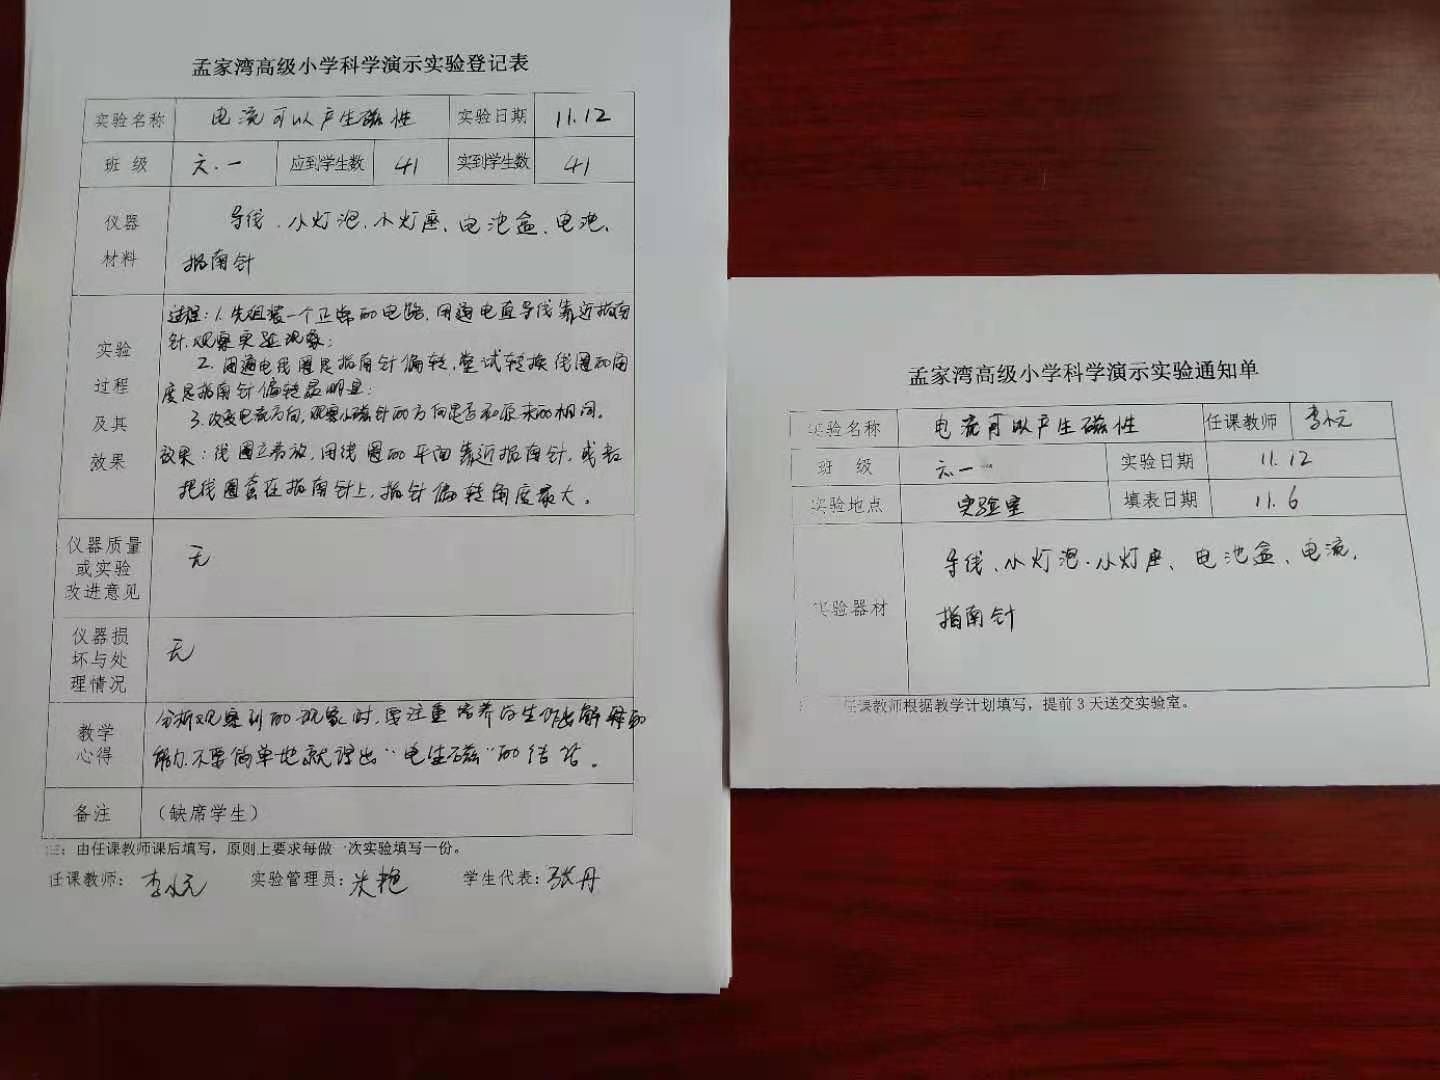 孟家湾高级小学科学演示实验登记表
实验名称 电流可以产生磁性 实验日期 11.12
班 级 六.一 应到学生数 41 实到学生数 41
仪器材料
导线、小灯泡、小灯座、电池盒、电池、
指南针
实验过程及其效果
过程:1.先组装一个正常的电路,用通电直导线靠近指南
针,观察实验现象;
2.用通电线圈是指南针偏转,尝试转换线圈的角
度是指南针偏转最明显;
3.改变电流方向,观察小磁针的方向是否和原来的相同。
效果:线圈立着放,用线圈的平面靠近指南针,或者
把线圈套在指南针上,指针偏转角度最大。
仪器质量或实验改进意见 无
仪器损坏与处理情况 无
教学心得
分析观察到的现象时,要注重培养学生作出解释的
能力,不要简单地就得出“电生磁”的结论。
备注 (缺席学生)
注:由任课教师课后填写,原则上要求每做一次实验填写一份。
任课教师: 实验管理员: 学生代表:张丹
孟家湾高级小学科学演示实验通知单
实验名称 电流可以产生磁性 任课教师
班 级 六.一 实验日期 11.12
实验地点 实验室 填表日期 11.6
实验器材
导线、小灯泡、小灯座、电池盒、电流、
指南针
任课教师根据教学计划填写,提前3天送交实验室。